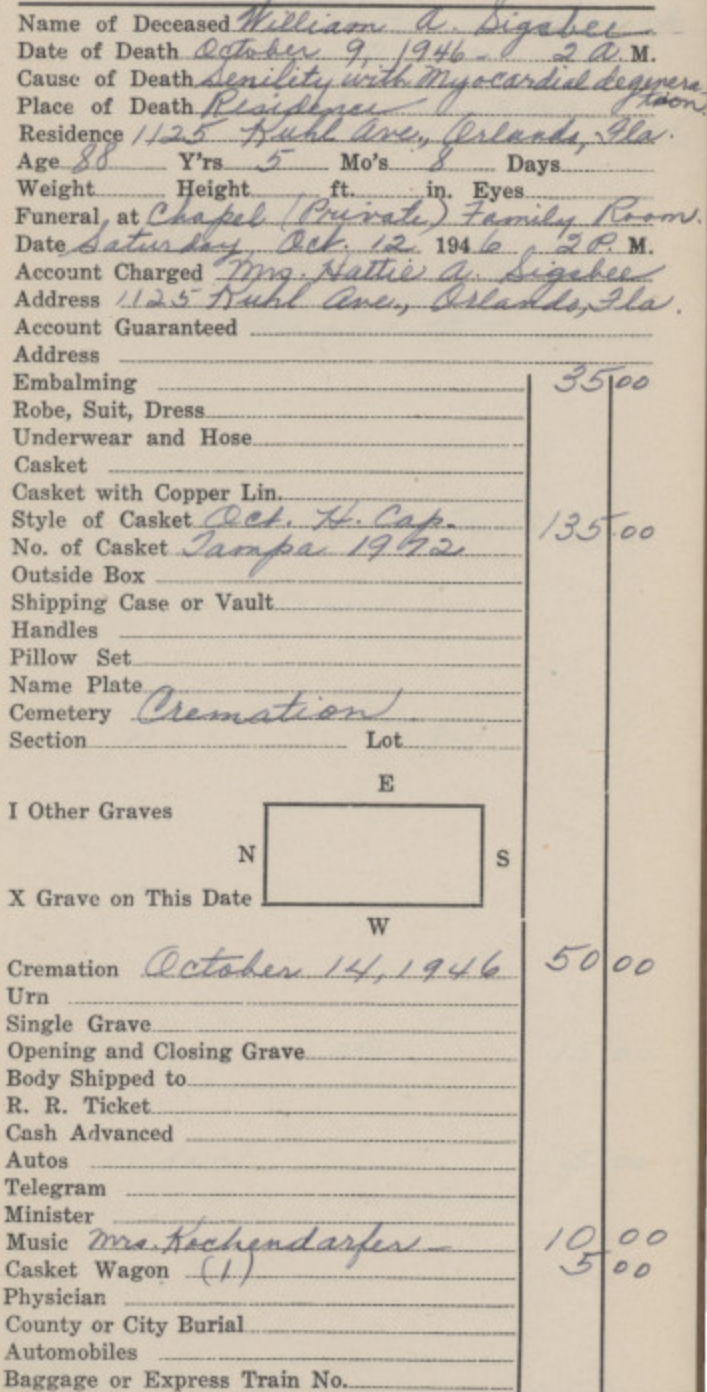 Name of Deceased William A. Sigsbee
Date of Death October 9, 1946 - 2 A. M.
Cause of Death Senility with Myocardial degenera-
tion.
Place of Death Residence
Residence 1125 Kuhl Ave., Orlando, Fla.
Age 88 Y'rs 5 Mo's 8 Days
Weight Height ft. in. Eyes
Funeral at Chapel (Private) Family Room.
Date Saturday Oct. 12 1946 2 P. M.
Account Charged Mrs. Hattie A. Sigsbee
Address 1125 Kuhl Ave., Orlando, Fla.
Account Guaranteed
Address
Embalming 35 00
Robe, Suit, Dress
Underwear and Hose
Casket
Casket with Copper Lin.
Style of Casket Oct. H. Cap. 135 00
No. of Casket Tampa 1972
Outside Box
Shipping Case or Vault
Handles
Pillow Set
Name Plate
Cemetery Cremation
Section Lot
E
I Other Graves
N S
X Grave on This Date
W
Cremation October 14, 1946 50 00
Urn
Single Grave
Opening and Closing Grave
Body Shipped to
R. R. Ticket
Cash Advanced
Autos
Telegram
Minister
Music Mrs. Kochendarfer - 10 00
Casket Wagon (1) 5 00
Physician
County or City Burial
Automobiles
Baggage or Express Train No.